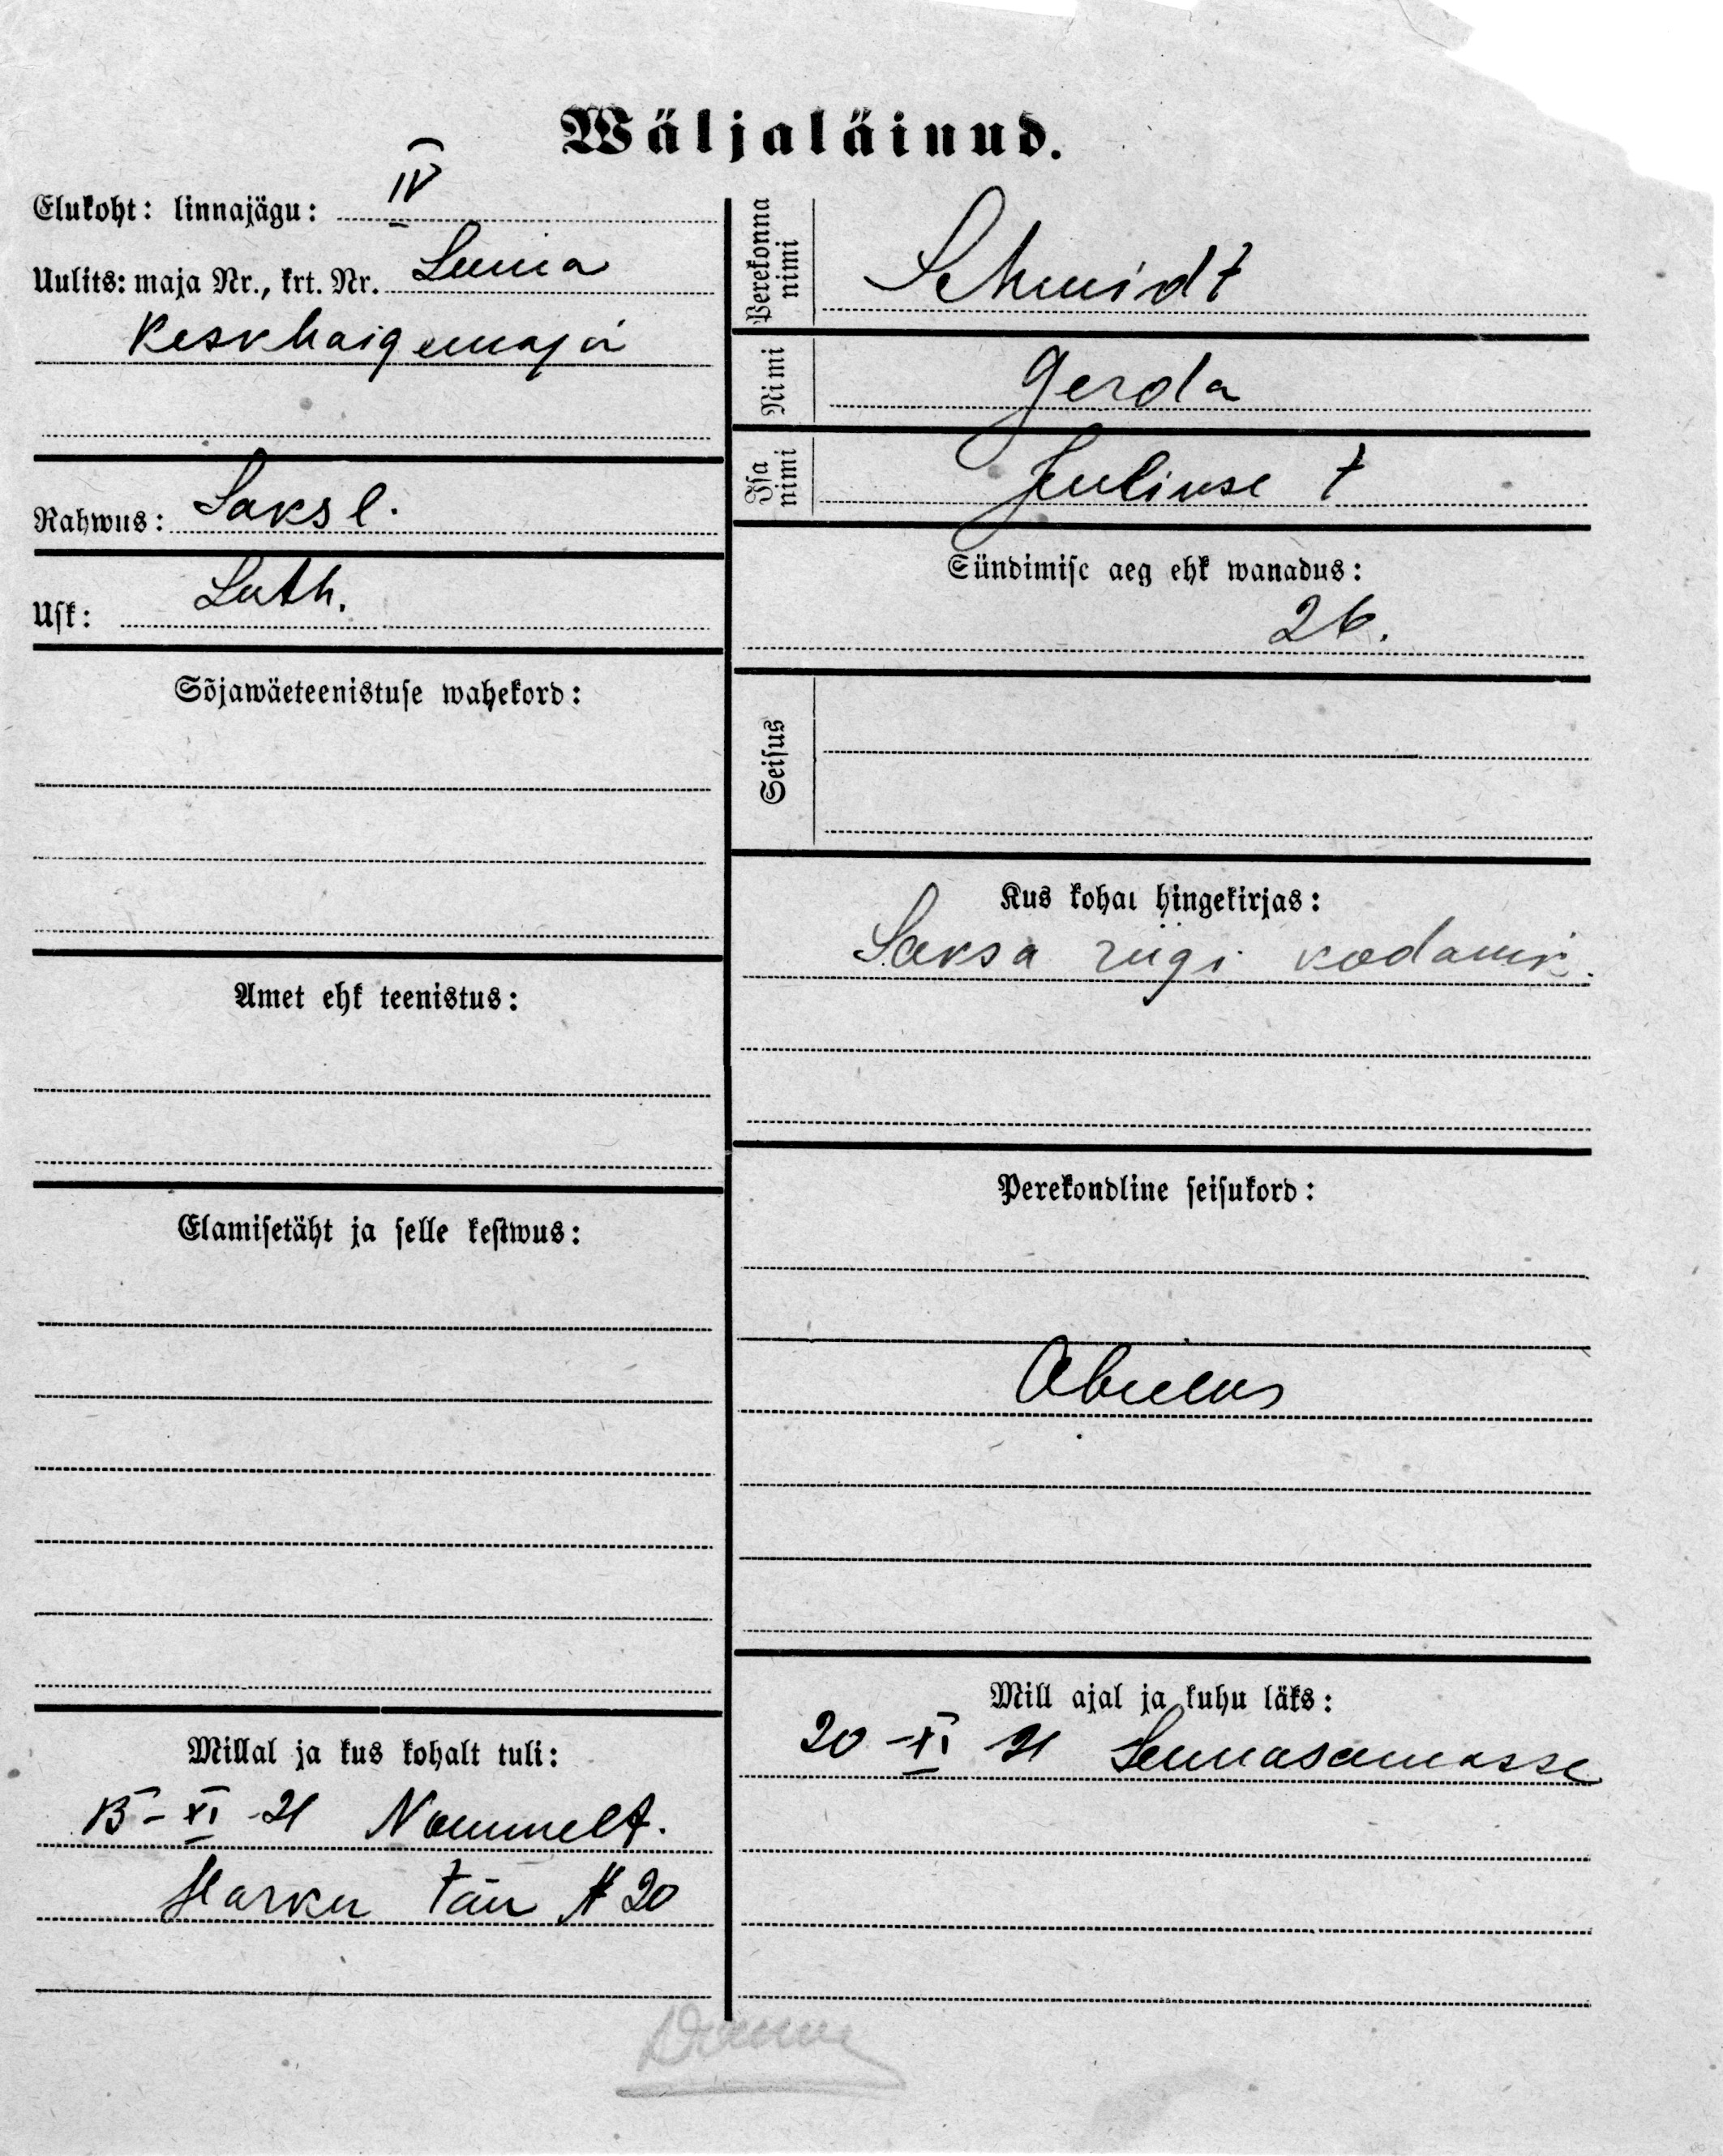 Wäljaläinud.
Elukoht: linnajägu: IV
Uulits: maja Nr., krt. Nr. Linna
Keskhaigemaja
Rahwus: Saksl.
Usk: Luth.
Sõjawäeteenistuse wahekord:
Amet ehk teenistus:
Elamisetäht ja selle kestwus:
Millal ja kus kohalt tuli:
15-XI-21 Nõmmelt.
Harku tän № 20
Perekonna nimi Schmidt
Nimi Gerda
Isa nimi Juliuse t
Sündimise aeg ehk wanadus:
26.
Seisus
Kus kohal hingekirjas:
Saksa riigi kodanik.
Perekondline seisukord:
Abielus
Mill ajal ja kuhu läks:
20-XI 21 Sennasamasse